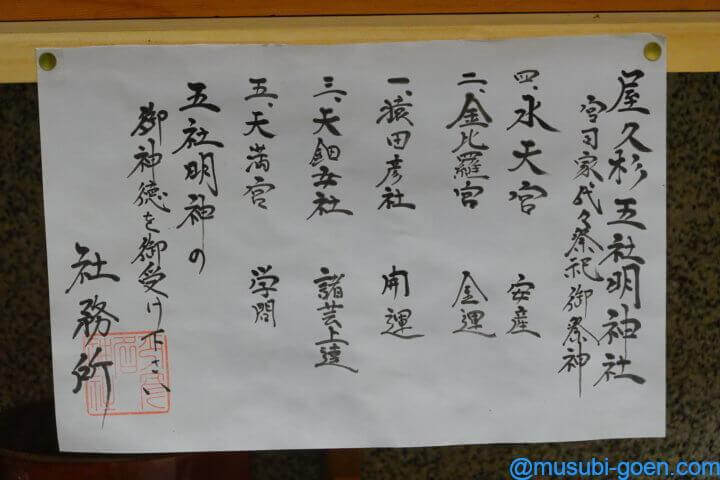 屋久杉五社明神社
宮司家代々祭祀御祭神
四、水天宮 安産
二、金比羅宮 金運
一、猿田彦社 開運
三、天鈿女社 諸芸上達
五、天満宮 学問
五社明神の
御神徳を御受け下さい
社務所
@musubi-goen.com